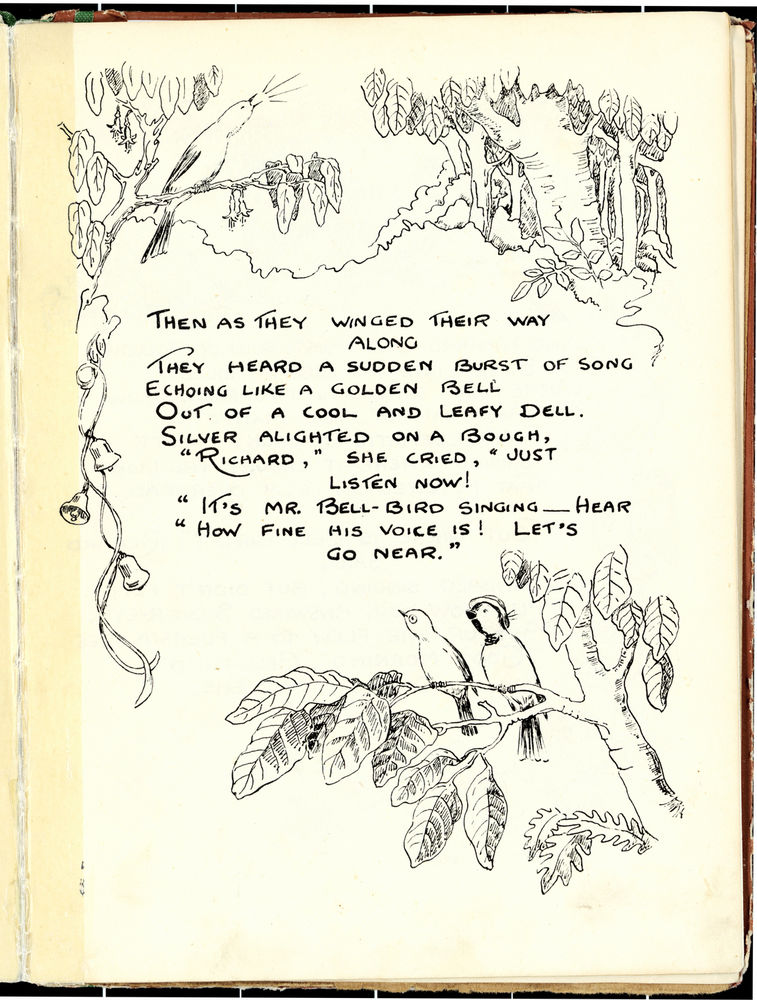 THEN AS THEY WINGED THEIR WAY
ALONG
THEY HEARD A SUDDEN BURST OF SONG
ECHOING LIKE A GOLDEN BELL
OUT OF A COOL AND LEAFY DELL.
SILVER ALIGHTED ON A BOUGH,
"RICHARD," SHE CRIED, "JUST
LISTEN NOW!
"IT'S MR. BELL-BIRD SINGING—HEAR
"HOW FINE HIS VOICE IS! LET'S
GO NEAR."